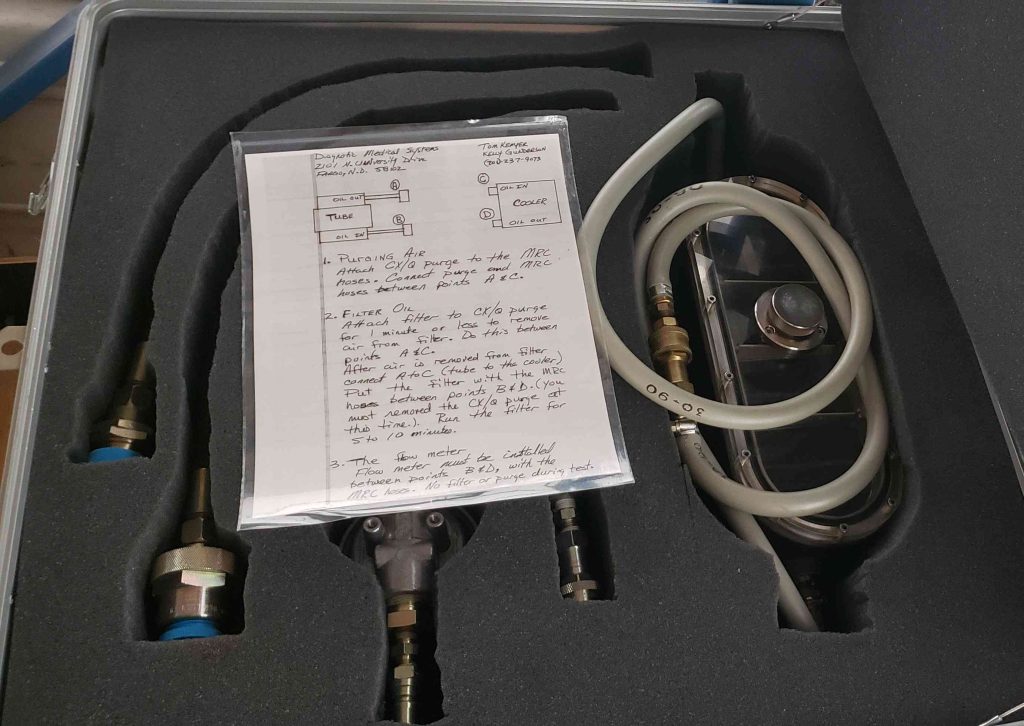 Diagnostic Medical Systems
2101 N. University Drive
FARGO, N.D. 58102
TOM KEMPER
KELLY GUNDERSON
237-9073
A
OIL OUT
TUBE
B
OIL IN
C
OIL IN
COOLER
D
OIL OUT
1. PURGING AIR
Attach CX/Q purge to the MRC
hoses. Connect purge and MRC
hoses between points A & C.
2. FILTER OIL
Attach filter to CX/Q purge
for 1 minute or less to remove
air from filter. Do this between
points A & C.
After air is removed from filter
connect A to C (tube to the cooler)
Put the filter with the MRC
hoses between points B & D. (you
must removed the CX/Q purge at
this time.). Run the filter for
5 to 10 minutes.
3. The flow meter
Flow meter must be installed
between points B & D, with the
MRC hoses. No filter or purge during test.
30-90